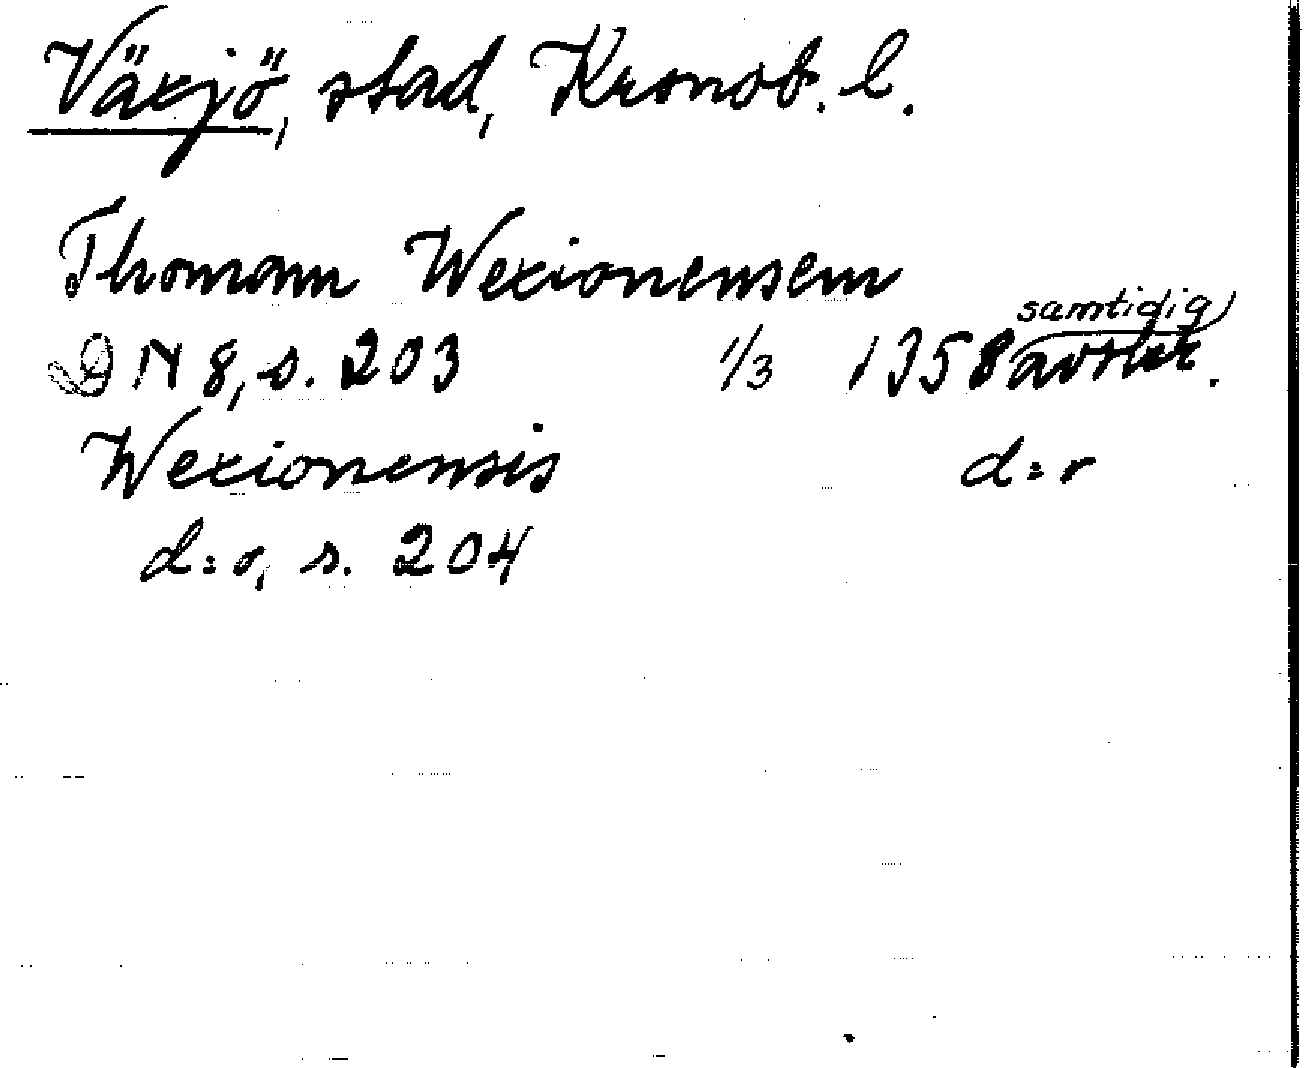 Växjö, stad, Kronob. l.
Thomam Wexionensem
samtidig
DN 8, s. 203 1/3 1358 avskr.
Wexionensis d:o
d:o, s. 204